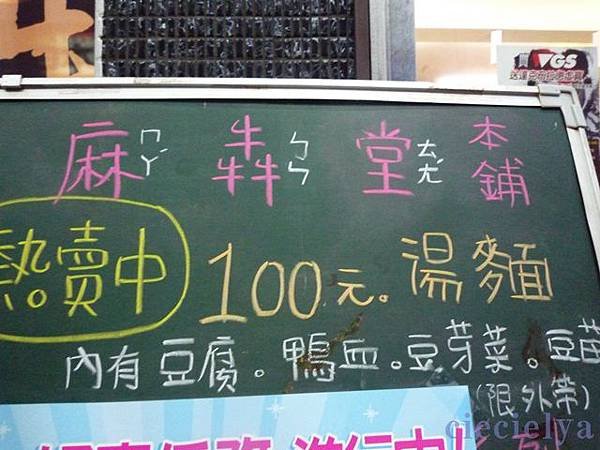 買 VGS
麻ㄇㄚˊ 犇ㄅㄣ 堂ㄊㄤˊ 本鋪
熱賣中 100元。湯麵
內有豆腐。鴨血。豆芽菜。豆苗
(限外帶)
ciecielya